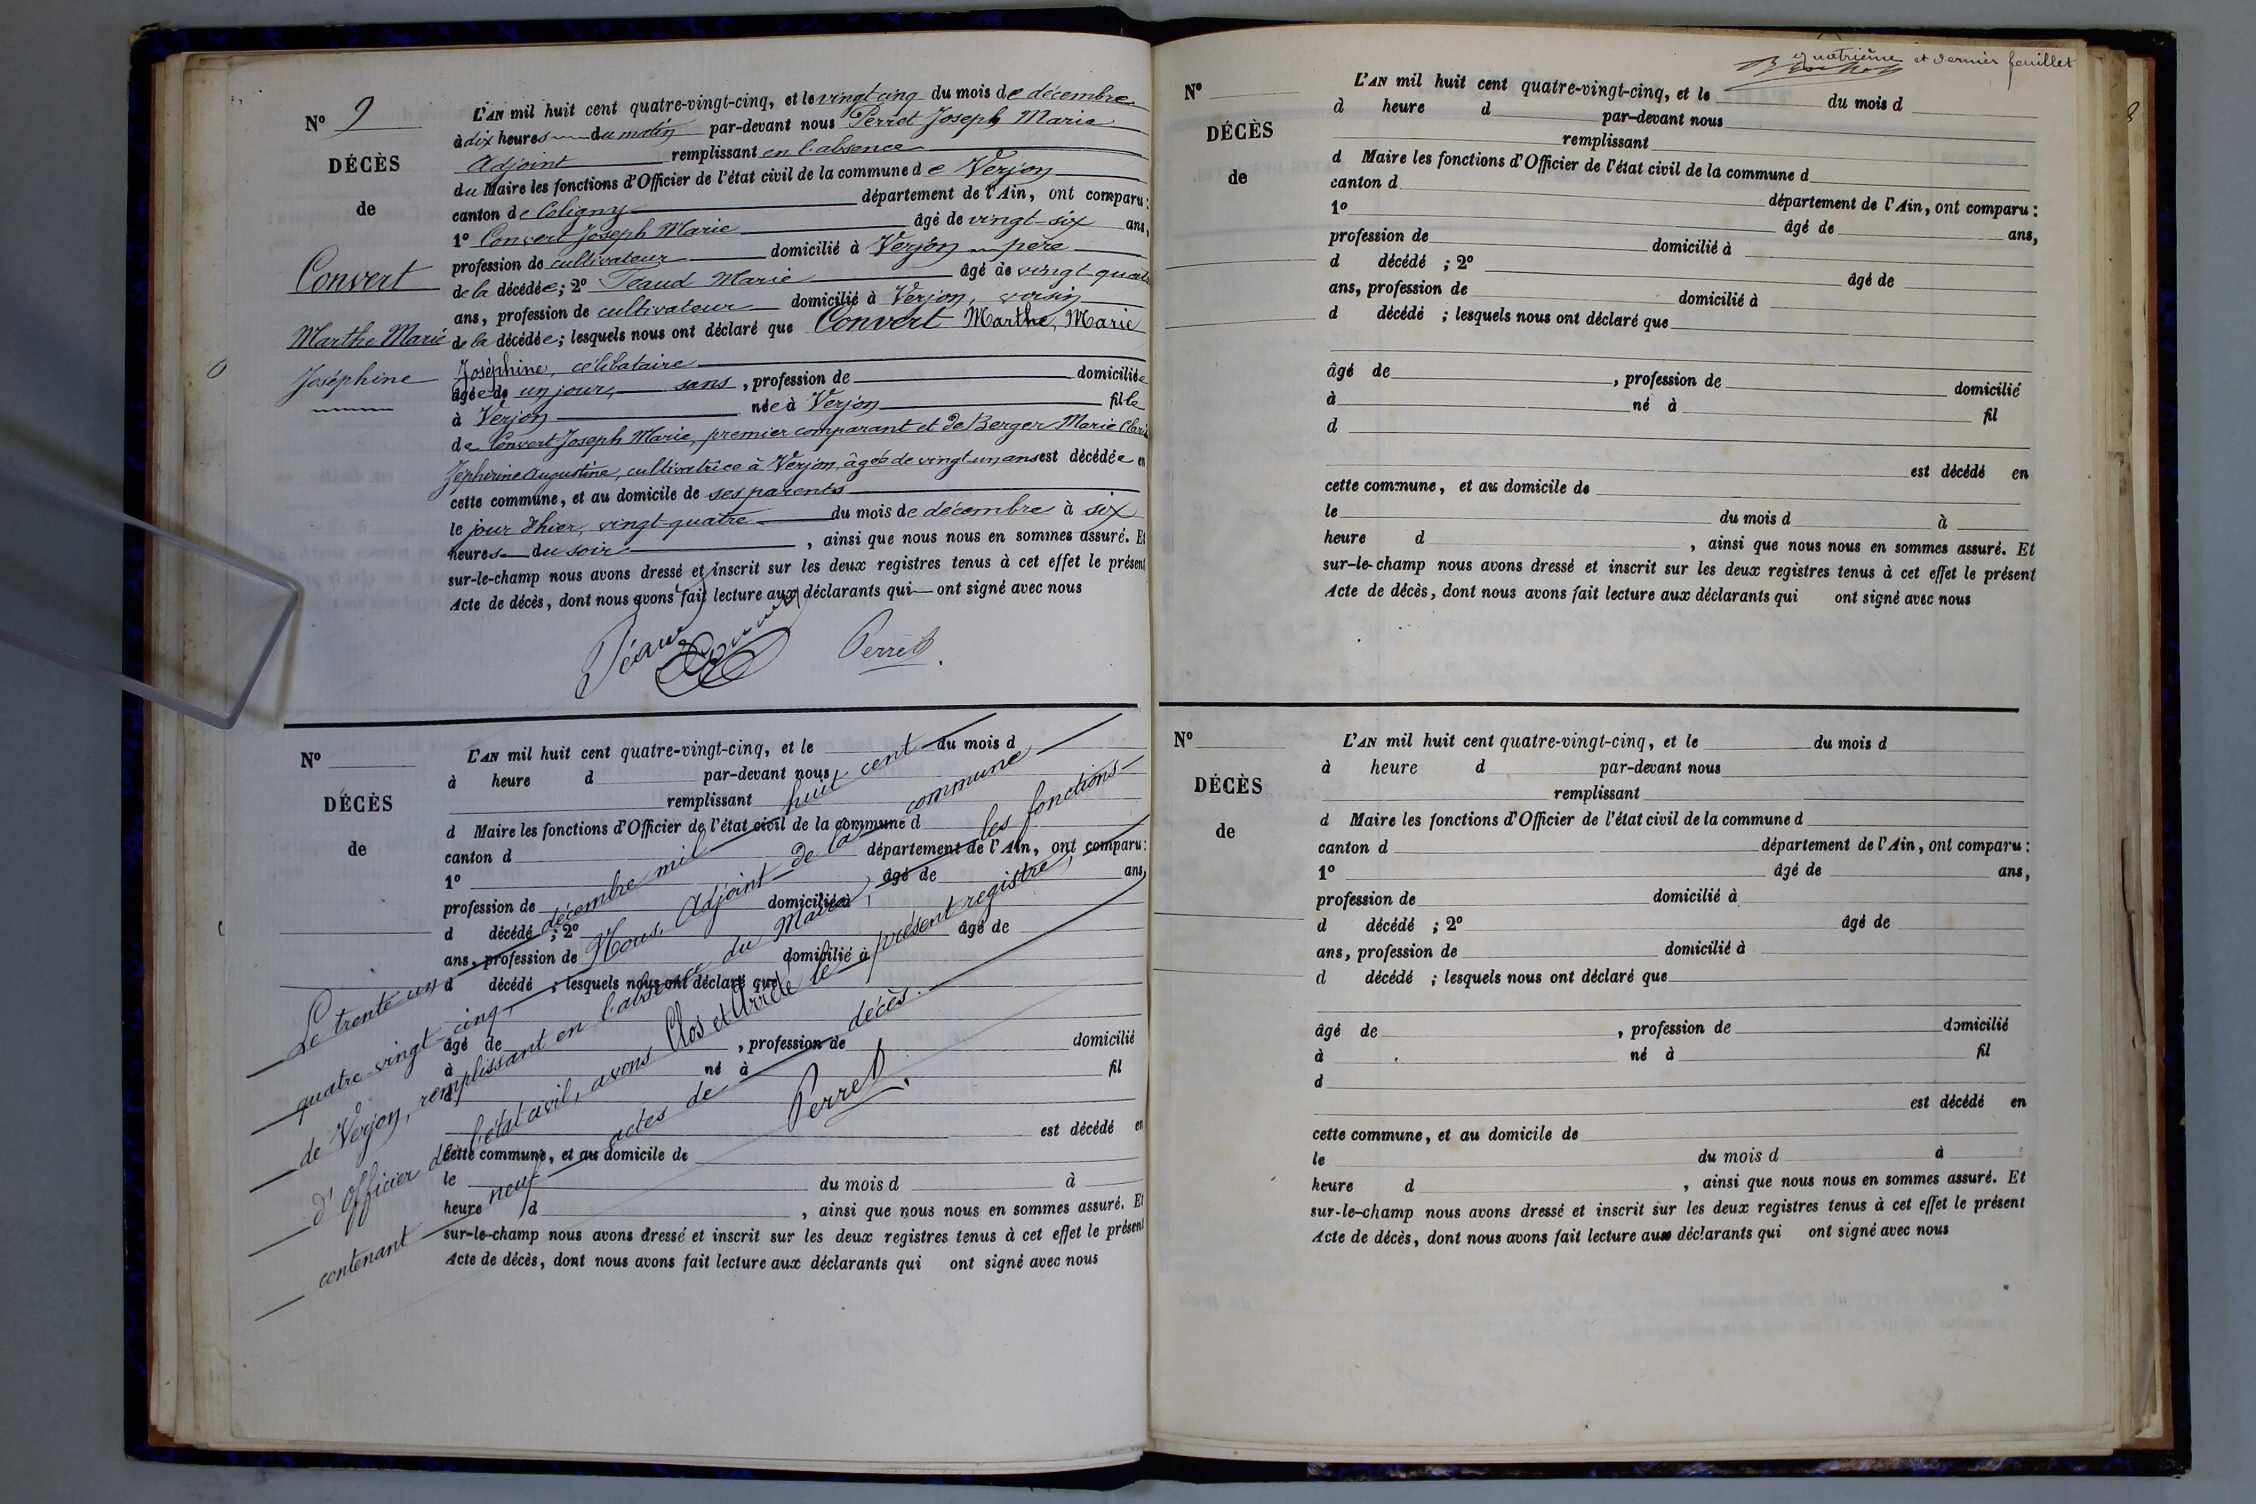 N° 9
DÉCÈS
de
Convert
Marthe Marie
Joséphine
L'AN mil huit cent quatre-vingt-cinq, et le vingt cinq du mois de décembre
à dix heures du matin par-devant nous Perret Joseph Marie
Adjoint remplissant en l'absence
du Maire les fonctions d'Officier de l'état civil de la commune de Verjon
canton de Coligny département de l'Ain, ont comparu :
1° Convert Joseph Marie âgé de vingt-six ans,
profession de cultivateur domicilié à Verjon père
de la décédée ; 2° Teaud Marie âgé de vingt-quatre
ans, profession de cultivateur domicilié à Verjon, voisin
de la décédée ; lesquels nous ont déclaré que Convert Marthe, Marie
Joséphine, célibataire
âgée de un jour, sans , profession de domiciliée
à Verjon née à Verjon fille
de Convert Joseph Marie, premier comparant et de Berger Marie
Zéphirine Augustine, cultivatrice à Verjon, âgée de vingt-un ans est décédée en
cette commune, et au domicile de ses parents
le jour d'hier, vingt-quatre du mois de décembre à six
heures du soir , ainsi que nous nous en sommes assuré. Et
sur-le-champ nous avons dressé et inscrit sur les deux registres tenus à cet effet le présent
Acte de décès, dont nous avons fait lecture aux déclarants qui ont signé avec nous
Téaud Convert Perret
N°
DÉCÈS
de
L'AN mil huit cent quatre-vingt-cinq, et le du mois d
à heure d par-devant nous
remplissant
d Maire les fonctions d'Officier de l'état civil de la commune d
canton d département de l'Ain, ont comparu :
1° âgé de ans,
profession de domicilié à
d décédé ; 2° âgé de
ans, profession de domicilié à
d décédé ; lesquels nous ont déclaré que
âgé de , profession de domicilié
à né à fil
d
est décédé en
cette commune, et au domicile de
le du mois d à
heure d , ainsi que nous nous en sommes assuré. Et
sur-le-champ nous avons dressé et inscrit sur les deux registres tenus à cet effet le présent
Acte de décès, dont nous avons fait lecture aux déclarants qui ont signé avec nous
Le trente un décembre mil huit cent
quatre-vingt cinq, Nous, Adjoint de la commune
de Verjon, remplissant en l'absence du Maire, les fonctions
d'Officier de l'état civil, avons Clos et Arrêté le présent registre,
contenant neuf actes de décès.
Perret
quatrième et dernier feuillet
N°
DÉCÈS
de
L'AN mil huit cent quatre-vingt-cinq, et le du mois d
à heure d par-devant nous
remplissant
d Maire les fonctions d'Officier de l'état civil de la commune d
canton d département de l'Ain, ont comparu :
1° âgé de ans,
profession de domicilié à
d décédé ; 2° âgé de
ans, profession de domicilié à
d décédé ; lesquels nous ont déclaré que
âgé de , profession de domicilié
à né à fil
d
est décédé en
cette commune, et au domicile de
le du mois d à
heure d , ainsi que nous nous en sommes assuré. Et
sur-le-champ nous avons dressé et inscrit sur les deux registres tenus à cet effet le présent
Acte de décès, dont nous avons fait lecture aux déclarants qui ont signé avec nous
N°
DÉCÈS
de
L'AN mil huit cent quatre-vingt-cinq, et le du mois d
à heure d par-devant nous
remplissant
d Maire les fonctions d'Officier de l'état civil de la commune d
canton d département de l'Ain, ont comparu :
1° âgé de ans,
profession de domicilié à
d décédé ; 2° âgé de
ans, profession de domicilié à
d décédé ; lesquels nous ont déclaré que
âgé de , profession de domicilié
à né à fil
d
est décédé en
cette commune, et au domicile de
le du mois d à
heure d , ainsi que nous nous en sommes assuré. Et
sur-le-champ nous avons dressé et inscrit sur les deux registres tenus à cet effet le présent
Acte de décès, dont nous avons fait lecture aux déclarants qui ont signé avec nous